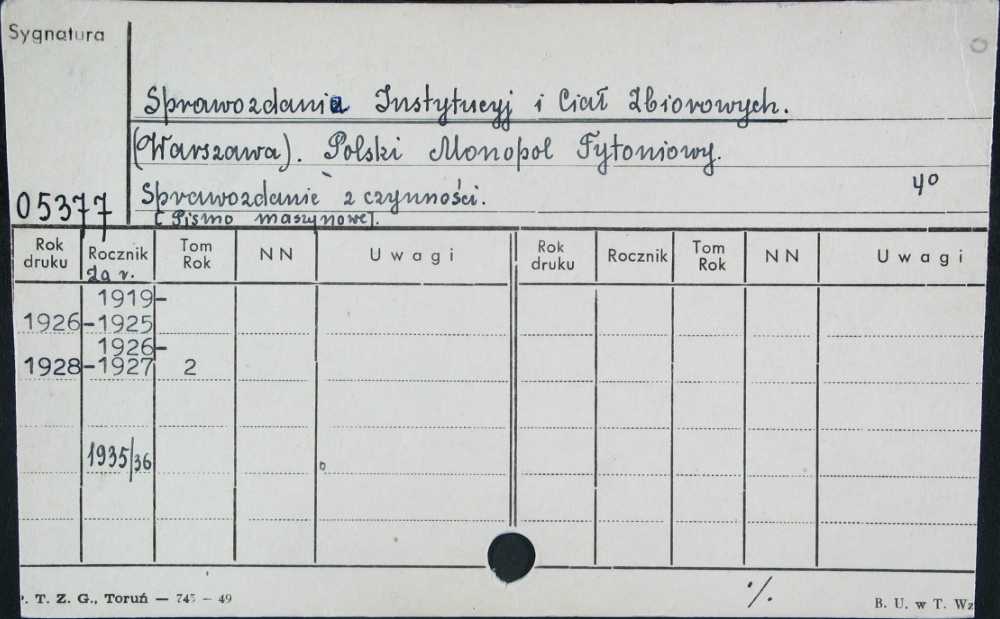 Sygnatura
Sprawozdania Instytucyj i Ciał Zbiorowych.
(Warszawa). Polski Monopol Tytoniowy.
Sprawozdanie z czynności. 4º
05377 [Pismo maszynowe].
Rok druku Rocznik Tom Rok NN Uwagi Rok druku Rocznik Tom Rok NN Uwagi
Za r.
1919-
1926 -1925
1926-
1928 -1927 2
1935/36
. T. Z. G., Toruń — 745 - 49 ./. B. U. w T. Wz